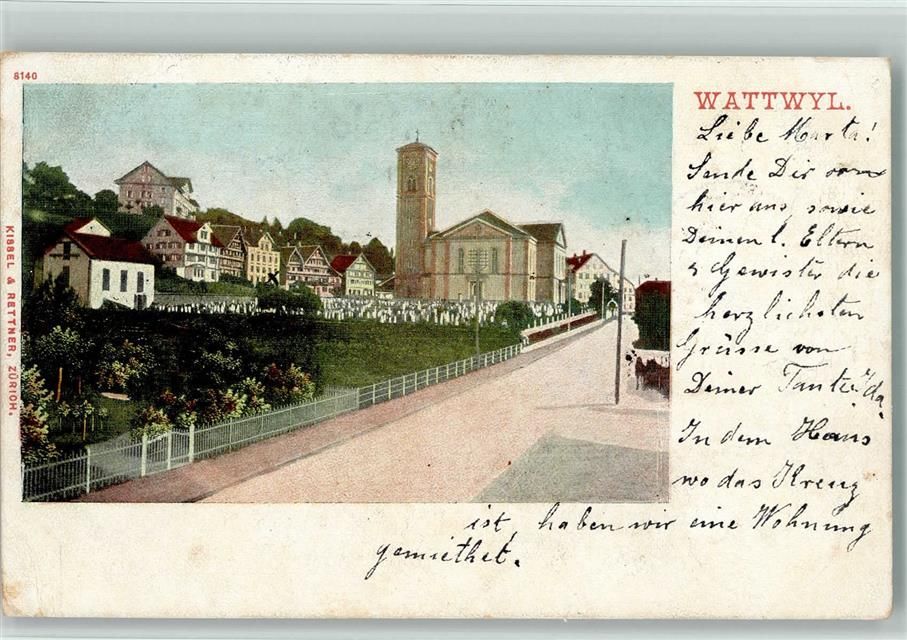 8140
WATTWYL.
Liebe Marta!
Sende Dir von
hier aus, sowie
Deinen l. Eltern
& Gewister die
herzlichsten
Grüsse von
Deiner Tante Ida
In dem Haus
wo das Kreuz
ist, haben wir eine Wohnung
gemiethet.
KISSEL & RETTNER, ZÜRICH.